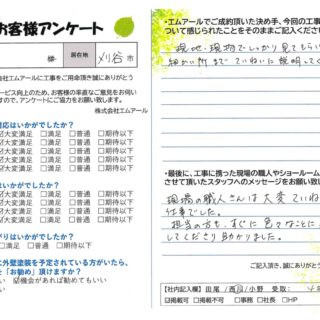 お客様アンケート
様
居住地 刈谷 市
式会社エムアールに工事をご用命頂き誠にありがとう
ービス向上のため、お客様の率直なご意見をお伺い
すので、アンケートにご協力をお願い致します。
株式会社エムアール
対応はいかがでしたか?
大変満足 □満足 □普通 □期待以下
大変満足 □満足 □普通 □期待以下
大変満足 □満足 □普通 □期待以下
いかがでしたか?
大変満足 □満足 □普通 □期待以下
大変満足 □満足 □普通 □期待以下
大変満足 □満足 □普通 □期待以下
がりはいかがでしたか?
□満足 □普通 □期待以下
に外壁塗装を予定されている方がいたら、
を「お勧め」頂けますか?
い 機会があれば勧めてもいい
い
・エムアールでご成約頂いた決め手、今回の工事
ついて感じられたことをそのままご記入ください
現地・現物でしっかり見てもらい
細かい所まで ていねいに説明して
・最後に、工事に携った現場の職人やショールーム
させて頂いたスタッフへのメッセージをお願い致
現場の職人さんは大変ていね
仕事でした。
担当の方も、すぐに色々なことに
してくださり助かりました。
ご記入頂き、誠にありがとう
【社内記入欄】田尾 / 西 / 小野 受取:
掲載可 □掲載不可 □事務 □社長 □HP